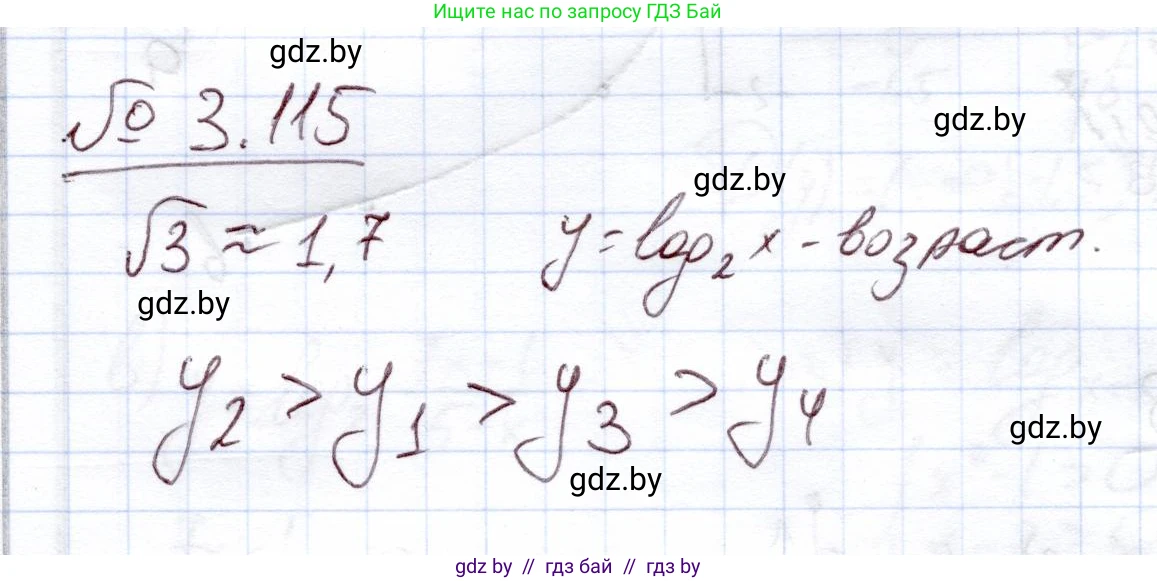 Ищите нас по запросу ГДЗ Бай
gdz.by
№ 3.115
gdz.by
gdz.by
√3 ≈ 1,7 y = log₂ x - возраст.
gdz.by
y₂ > y₁ > y₃ > y₄
gdz.by
gdz.by
gdz.by // гдз бай // гдз by